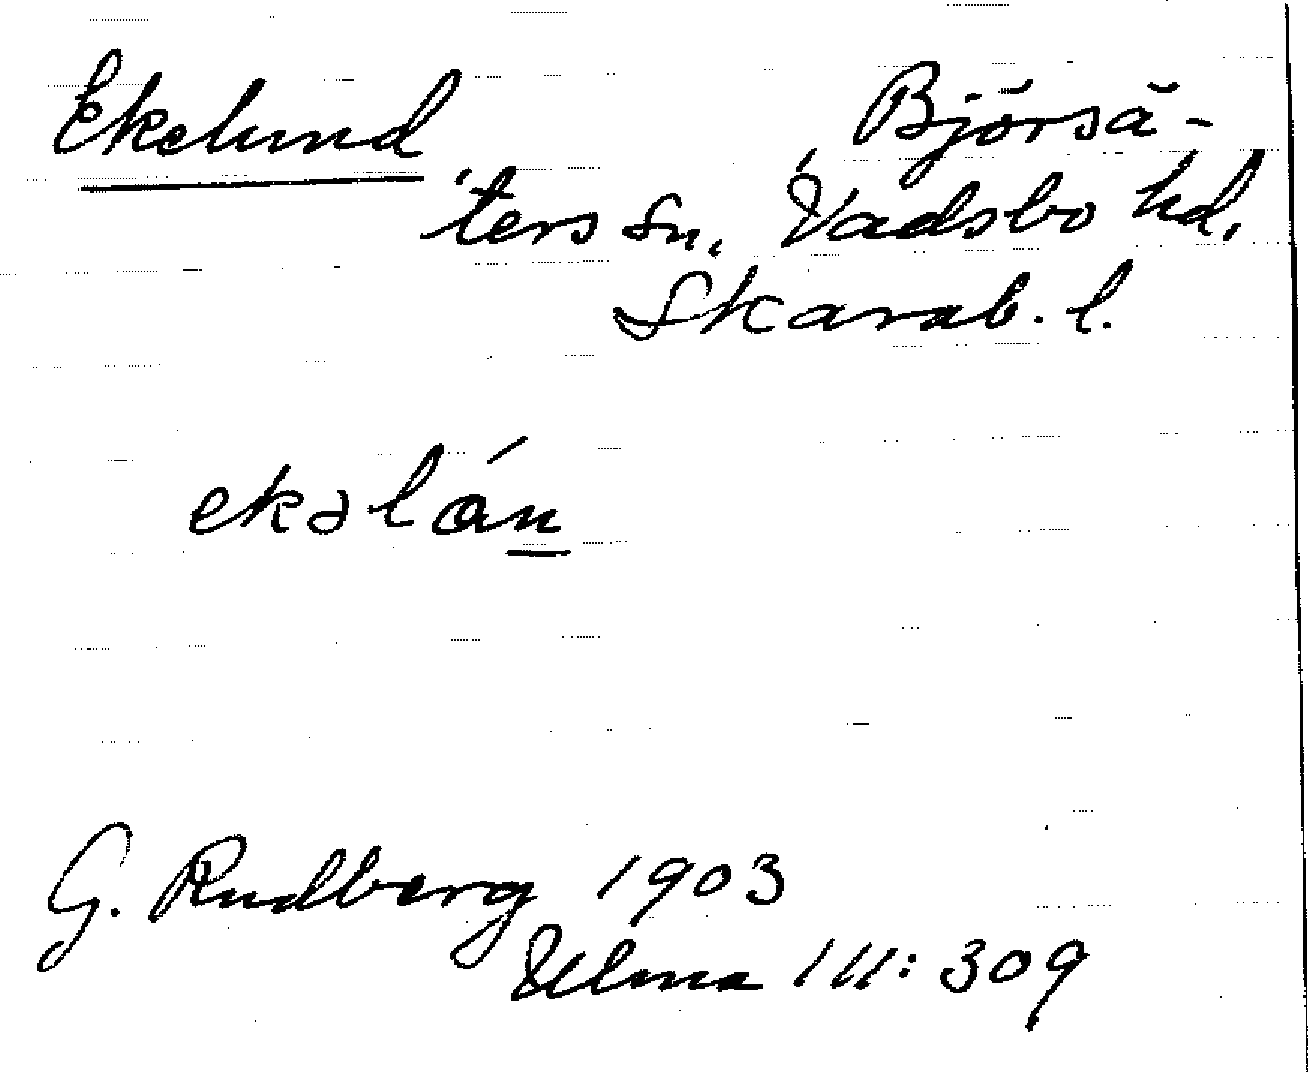 Ekelund
Björsä-
ters sn, Vadsbo hd,
Skarab. l.
ekəlán
G. Rudberg 1903
Ulma 111: 309